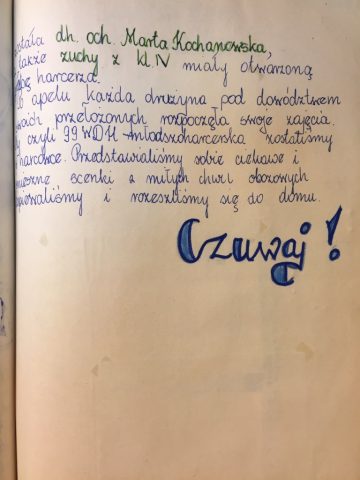 stała dh. och. Marta Kochanowska,
także zuchy z kl. IV miały otwarzoną
bę harcerza.
o apelu każda drużyna pod dowództwem
oich przełożonych rozpoczęła swoje zajęcia.
y czyli 99 WDH-młodszoharcerska zostaliśmy
harcówce. Przedstawialiśmy sobie ciekawe i
ieszne scenki z miłych chwil obozowych
piewaliśmy i rozeszliśmy się do domu.
Czuwaj!